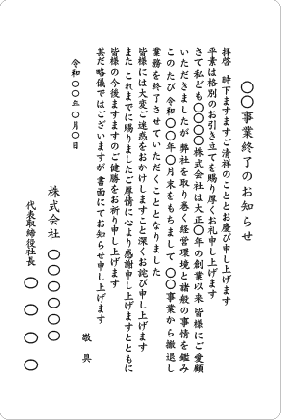 〇〇事業終了のお知らせ
拝啓 時下ますますご清祥のこととお慶び申し上げます
平素は格別のお引き立てを賜り厚くお礼申し上げます
さて 私ども〇〇〇〇株式会社は大正〇年の創業以来 皆様にご愛顧
いただきましたが 弊社を取り巻く経営環境と諸般の事情を鑑み
このたび 令和〇〇年〇月末をもちまして 〇〇事業から撤退し
業務を終了させていただくこととなりました
皆様には大変ご迷惑をおかけしますこと深くお詫び申し上げます
また これまでに賜りましたご厚情に心より感謝申し上げますとともに
皆様の今後ますますのご健勝をお祈り申し上げます
甚だ略儀ではございますが書面にてお知らせ申し上げます
敬具
令和〇〇年〇月〇日
株式会社 〇〇〇〇〇〇
代表取締役社長 〇〇〇〇